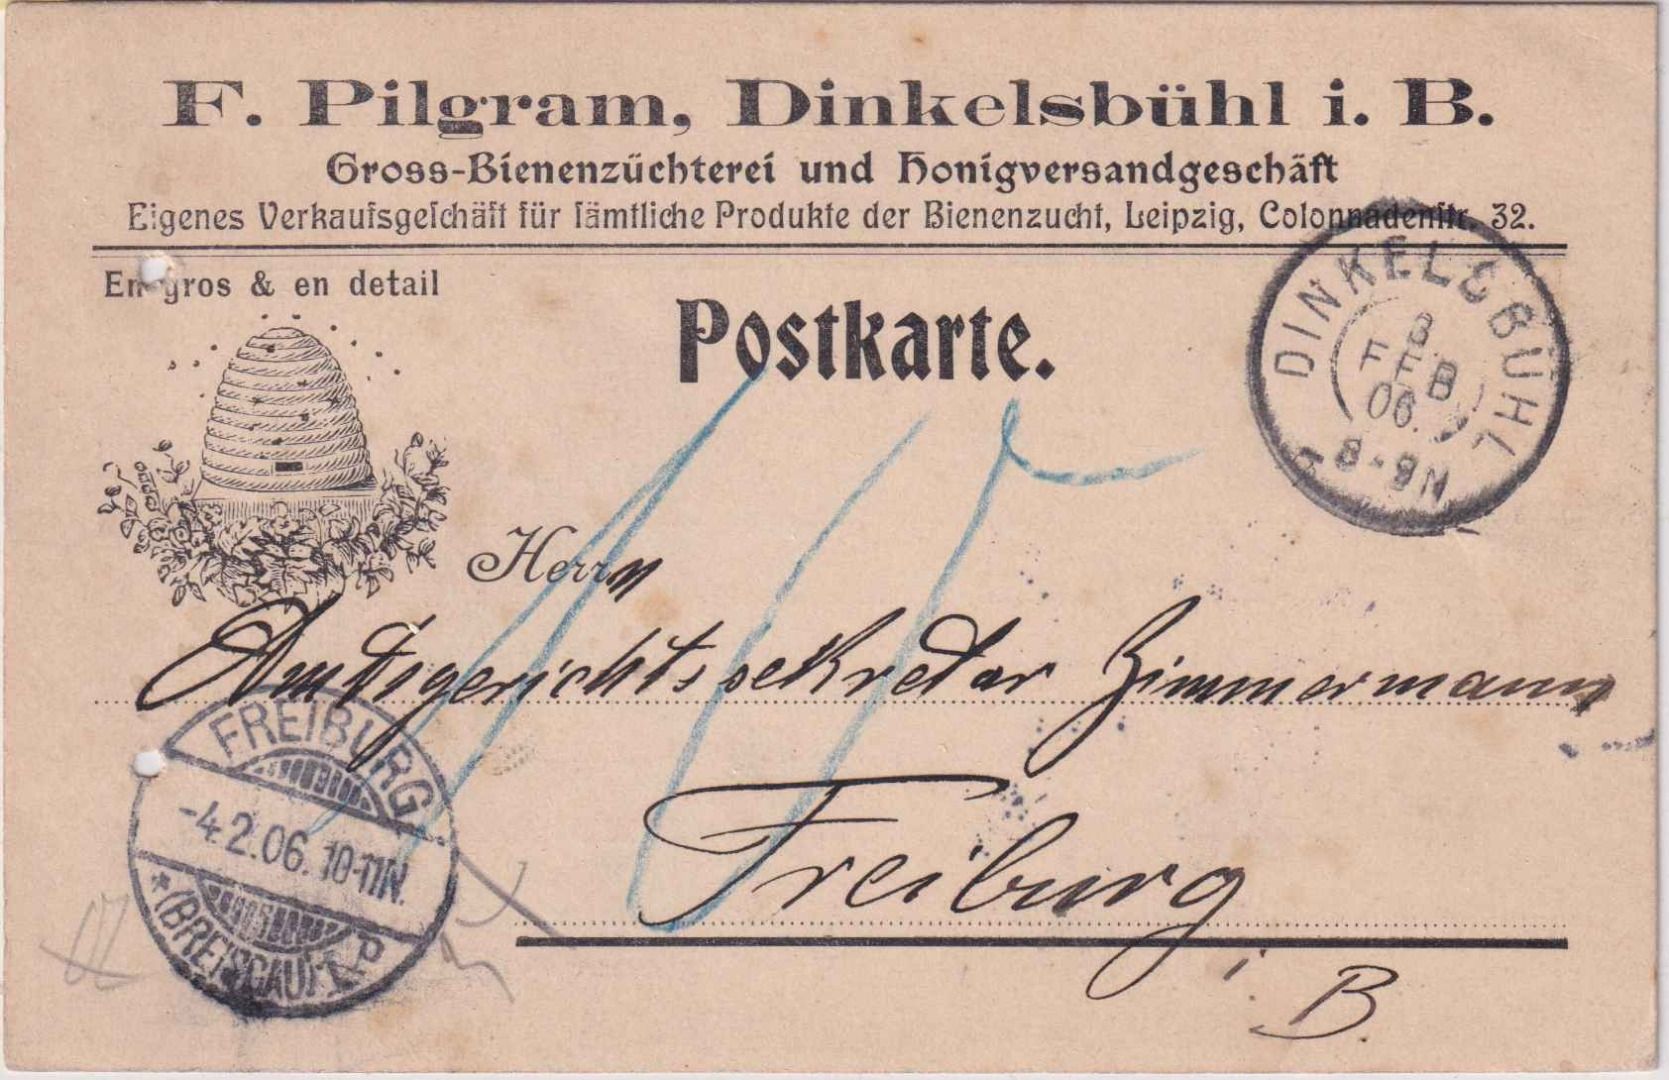 F. Pilgram, Dinkelsbühl i. B.
Gross-Bienenzüchterei und Honigversandgeschäft
Eigenes Verkaufsgeſchäft für ſämtliche Produkte der Bienenzucht, Leipzig, Colonnadenſtr. 32.
En gros & en detail
DINKELSBÜHL
3 FEB 06.
8-9N
Postkarte.
10
Herrn
Amtsgerichtssekretar Zimmermann
FREIBURG
-4.2.06. 10-11N.
* (BREISGAU) 1 P
Freiburg
i. B.